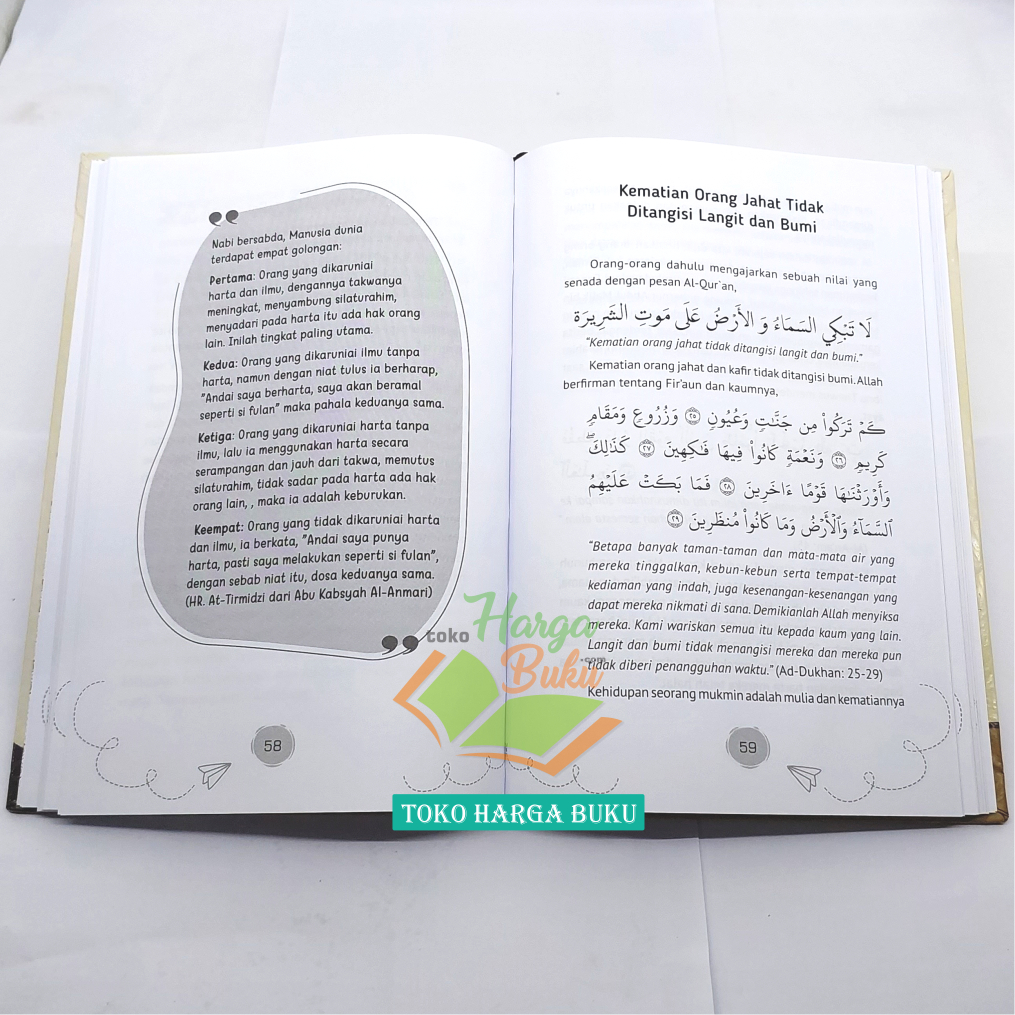 Nabi bersabda, Manusia dunia
terdapat empat golongan:
Pertama: Orang yang dikaruniai
harta dan ilmu, dengannya takwanya
meningkat, menyambung silaturahim,
menyadari pada harta itu ada hak orang
lain. Inilah tingkat paling utama.
Kedua: Orang yang dikaruniai ilmu tanpa
harta, namun dengan niat tulus ia berharap,
"Andai saya berharta, saya akan beramal
seperti si fulan" maka pahala keduanya sama.
Ketiga: Orang yang dikaruniai harta tanpa
ilmu, lalu ia menggunakan harta secara
serampangan dan jauh dari takwa, memutus
silaturahim, tidak sadar pada harta ada hak
orang lain, , maka ia adalah keburukan.
Keempat: Orang yang tidak dikaruniai harta
dan ilmu, ia berkata, "Andai saya punya
harta, pasti saya melakukan seperti si fulan",
dengan sebab niat itu, dosa keduanya sama.
(HR. At-Tirmidzi dari Abu Kabsyah Al-Anmari)
58
Kematian Orang Jahat Tidak
Ditangisi Langit dan Bumi
Orang-orang dahulu mengajarkan sebuah nilai yang
senada dengan pesan Al-Qur`an,
لَا تَبْكِي السَمَاءُ وَ الأَرْضُ عَلَى مَوتِ الشَرِيرَة
"Kematian orang jahat tidak ditangisi langit dan bumi."
Kematian orang jahat dan kafir tidak ditangisi bumi. Allah
berfirman tentang Fir'aun dan kaumnya,
كَمْ تَرَكُوا۟ مِن جَنَّٰتٍ وَعُيُونٍ ٢٥ وَزُرُوعٍ وَمَقَامٍ
كَرِيمٍ ٢٦ وَنَعْمَةٍ كَانُوا۟ فِيهَا فَٰكِهِينَ ٢٧ كَذَٰلِكَ ۖ
وَأَوْرَثْنَٰهَا قَوْمًا ءَاخَرِينَ ٢٨ فَمَا بَكَتْ عَلَيْهِمُ
ٱلسَّمَآءُ وَٱلْأَرْضُ وَمَا كَانُوا۟ مُنظَرِينَ ٢٩
"Betapa banyak taman-taman dan mata-mata air yang
mereka tinggalkan, kebun-kebun serta tempat-tempat
kediaman yang indah, juga kesenangan-kesenangan yang
dapat mereka nikmati di sana. Demikianlah Allah menyiksa
mereka. Kami wariskan semua itu kepada kaum yang lain.
Langit dan bumi tidak menangisi mereka dan mereka pun
tidak diberi penangguhan waktu." (Ad-Dukhan: 25-29)
Kehidupan seorang mukmin adalah mulia dan kematiannya
59
toko Harga
Buku.com
TOKO HARGA BUKU